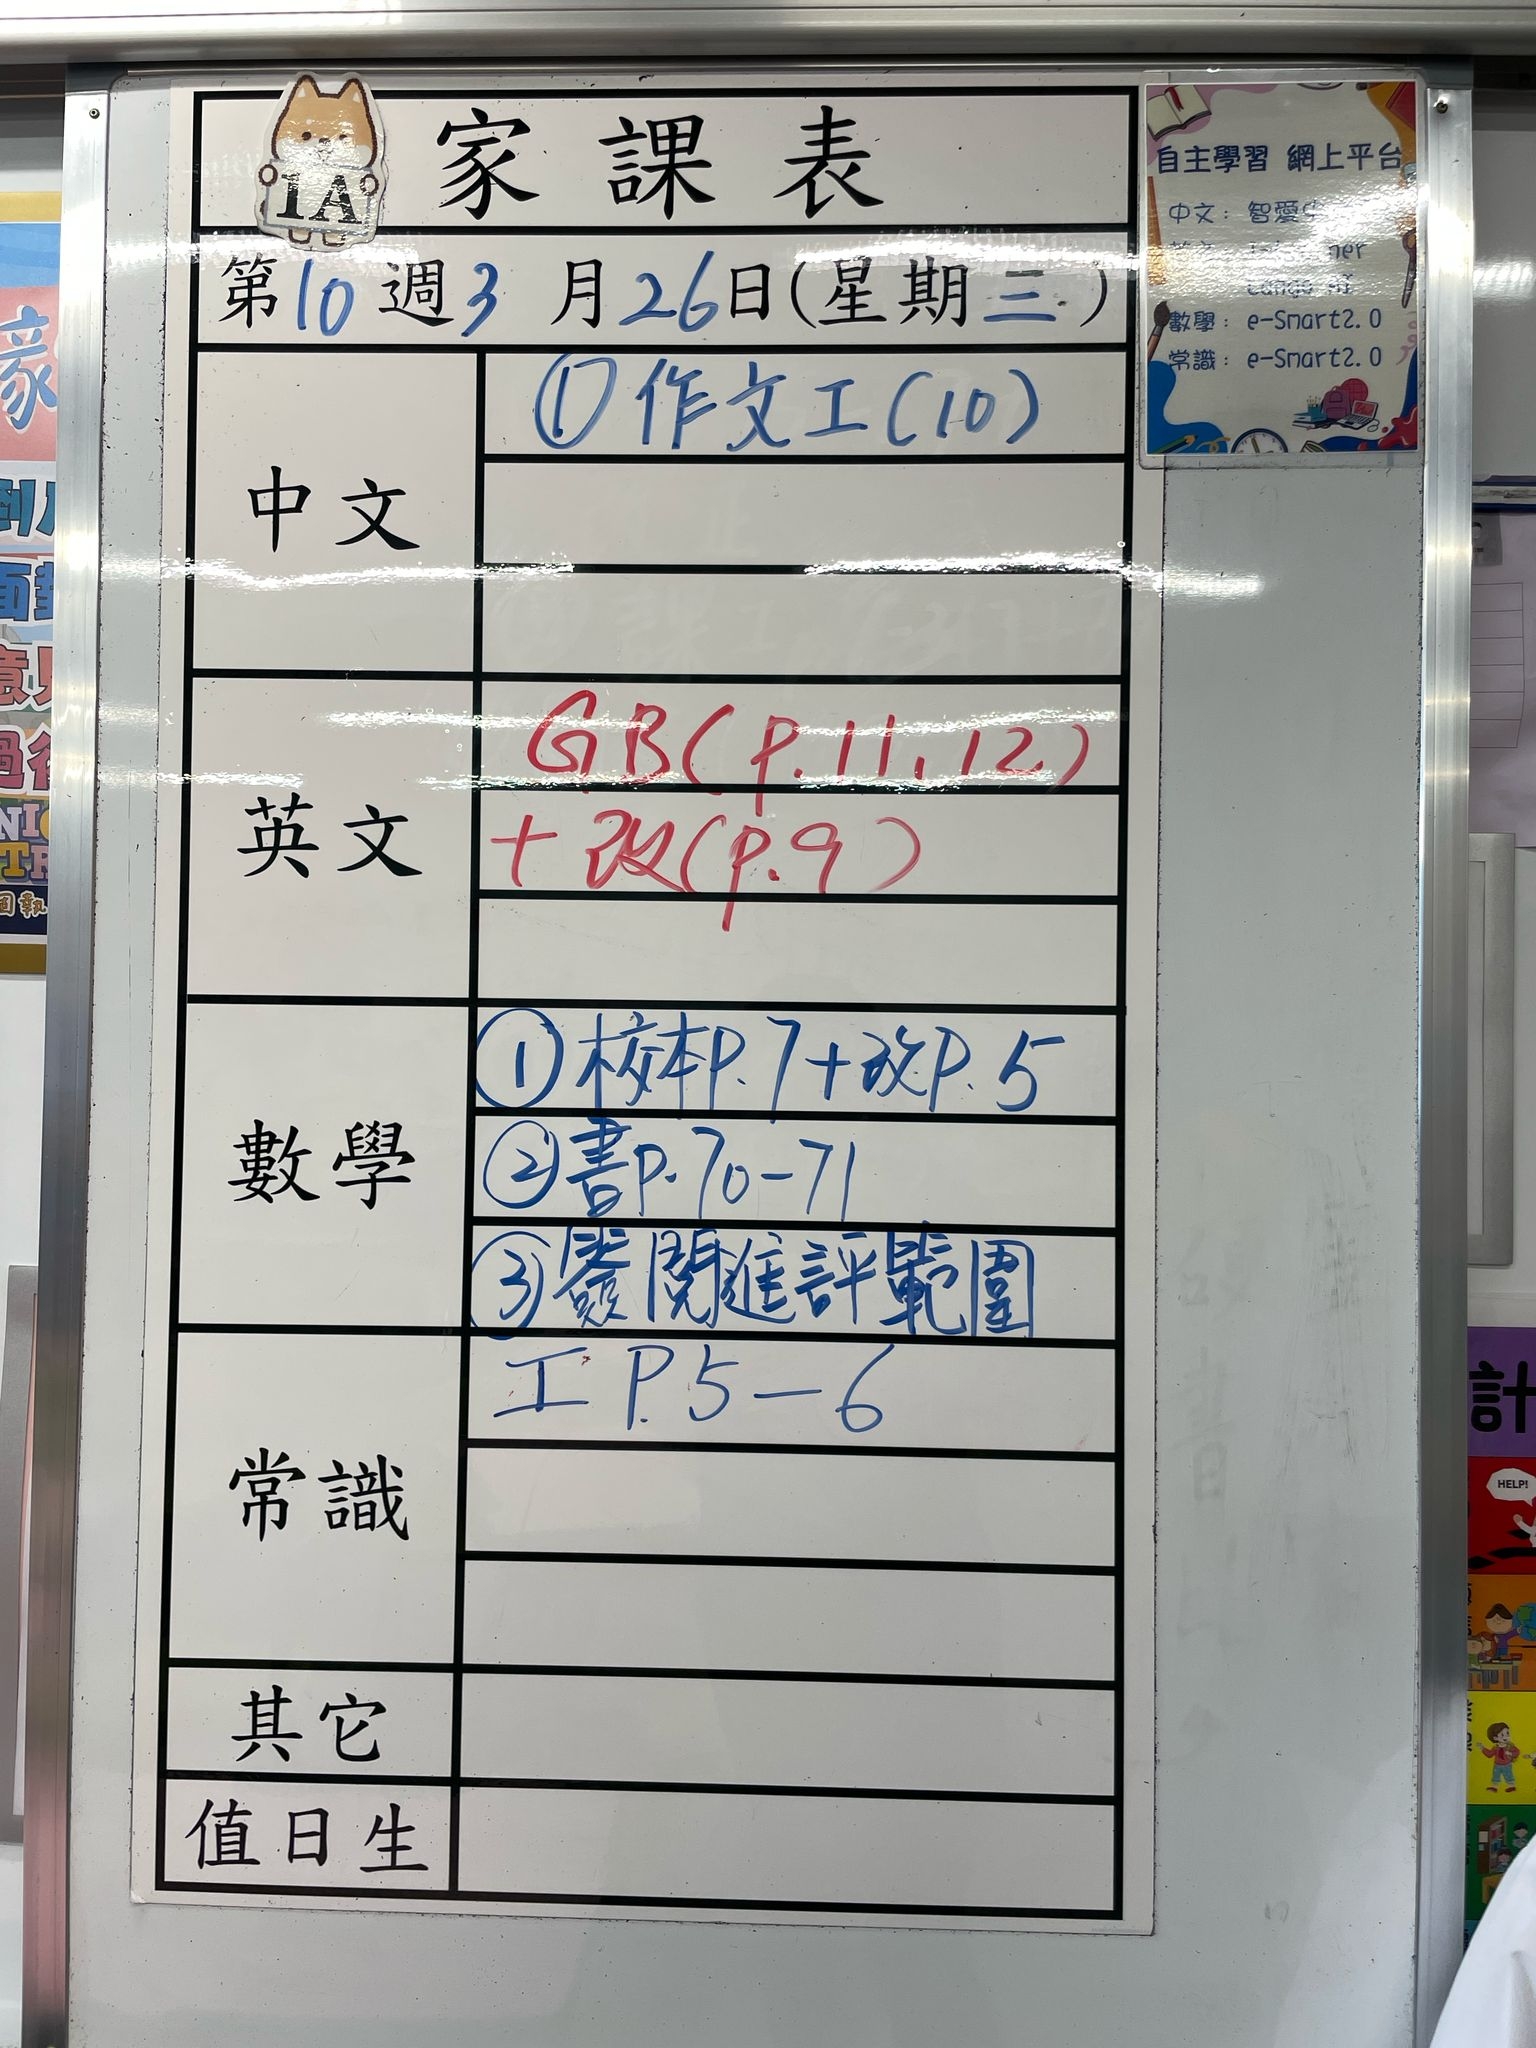 1A
家課表
第10週3月26日(星期三)
中文
①作文工(10)
英文
GB(p.11,12)
+改(p.9)
數學
①校本P.7+改P.5
②書P.70-71
③簽閱進評範圍
常識
工P.5-6
其它
值日生
自主學習 網上平台
中文: 智愛
數學: e-Smart2.0
常識: e-Smart2.0
計
HELP!